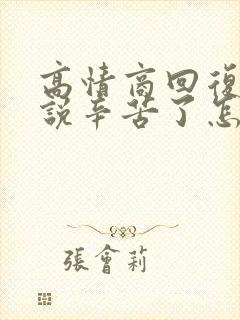 高情商回復
說辛苦了怎
張會莉